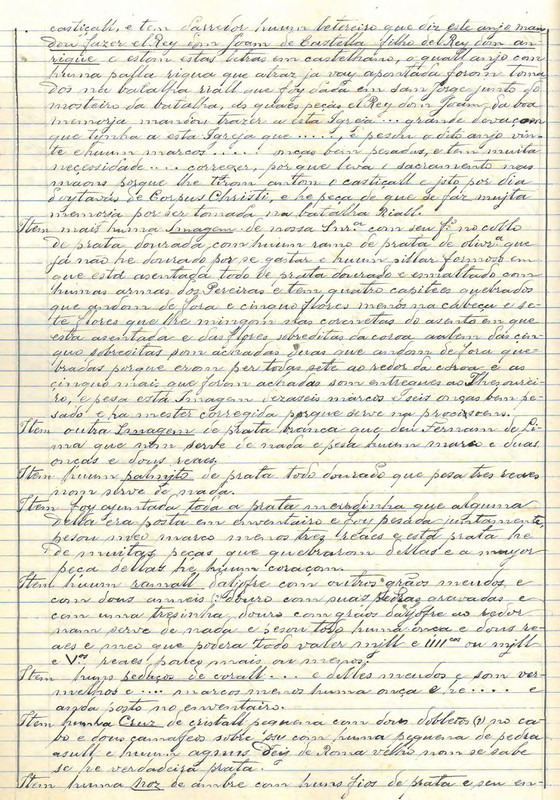 castiçall, e tem darredor huum betereiro que diz este anjo man
dou fazer el Rey dom Joam de Castella filho del Rey dom an
rique e estom estas letras em castelhano, o quall anjo com
huma palla rigua que atraz ja vay apontada forom toma
dos na batalha riall que foy dada em Sam Jorge junto do
mosteiro da batalha, as quaaes peças el Rey dom Joam da boa
memorja mandou trazer a esta Igreia .... grande devaçom
que tinha a esta Igreja que ....., e pesou o dito anjo vin-
te e huum marcos ..... onças bem pesadas, e tem muita
neçessidade .... correger, porque leva o sacramento nas
maons porque lhe tirom antom o castiçall e jsto por dia
doytavas de Corpus Christi, e he peça de que se faz mujta
memoria por ser tomada na batalha Riall.
Item mais huma Imagem de nossa Snrª com seu fº no collo
de prata dourada, com huum ramo de prata de olivrª que
já não he dourado por se gastar e huum pillar formoso em
que está asentada todo de prata dourado e esmaltado com
huũas armas dos Pereiras e tem quatro capitees quebrados
que andom de fora e cinquo flores menos na cabeça e se-
te flores que lhe mingom nas coronetas do asento em que
esta asentada e das flores sobreditas da coroa aalem das cin-
quo sobreditas som achadas duas que andom de fora que-
bradas porque erom per todas sete ao redor da coroa e as
çinquo mais que forom achadas som entregues ao Thezourei-
ro, e pesa está Imagem dezaseis marcos e seis onças bem pe-
sado e ha mester corregida porque serve na procissoens.
Item outra Imagem de prata branca que deu Fernam de Li-
ma que nom serve de nada e pesa huum marco e duas
onças e dous reaes.
Item huum palmito de prata todo dourado que pesa tres reaes
nom serve de nada.
Item foy ajuntada toda a prata meudinha que alguma
della era posta em enventairo e foy pesada juntamente,
pesou meo marco menos trez reaes e está prata he
de muitas peças que quebrarom dellas e a mayor
peça dellas he huum coraçom.
Item huum ramall daljofre com outros grãos meudos e
com dous anneis douro com suas pedras gravadas e
com uma tresinha douro com grãos daljofre ao redor
nam serve de nada e pesou todo huma onça e dous re-
aes e meo que podera todo valer mill e IIIIcos ou mjll
e Vos reaes, pouco mais ou menos.
Item huns pedaços de corall .... e delles meudos e som ver-
melhos e .... marcos menos huma onça e re..... e
anda posto no enventairo.
Item huma Cruz de cristall pequena com dous dobletes (?) no ca-
bo e dous camafeos sobre ssy com huma pequena de pedra
asull e huum agnus Deis de Roma velho nom se sabe
se he verdadeira prata.
Item huma Noz de ambre com huns fios de prata e seu en-